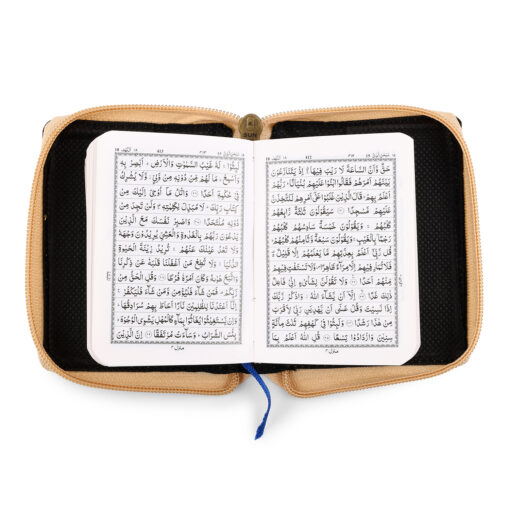 حَقٌّ وَّاَنَّ السَّاعَةَ لَا رَيْبَ فِيْهَا اِذْ يَتَنَازَعُوْنَ
بَيْنَهُمْ اَمْرَهُمْ فَقَالُوا ابْنُوْا عَلَيْهِمْ بُنْيَانًا رَبُّهُمْ
اَعْلَمُ بِهِمْ قَالَ الَّذِيْنَ غَلَبُوْا عَلٰٓى اَمْرِهِمْ لَنَتَّخِذَنَّ
عَلَيْهِمْ مَّسْجِدًا سَيَقُوْلُوْنَ ثَلٰثَةٌ رَّابِعُهُمْ
كَلْبُهُمْ وَيَقُوْلُوْنَ خَمْسَةٌ سَادِسُهُمْ كَلْبُهُمْ
رَجْمًا بِالْغَيْبِ وَيَقُوْلُوْنَ سَبْعَةٌ وَّثَامِنُهُمْ كَلْبُهُمْ
قُلْ رَّبِّيْٓ اَعْلَمُ بِعِدَّتِهِمْ مَّا يَعْلَمُهُمْ اِلَّا قَلِيْلٌ
فَلَا تُمَارِ فِيْهِمْ اِلَّا مِرَآءً ظَاهِرًا وَّلَا تَسْتَفْتِ فِيْهِمْ
مِّنْهُمْ اَحَدًا وَلَا تَقُوْلَنَّ لِشَايْءٍ اِنِّيْ فَاعِلٌ
ذٰلِكَ غَدًا اِلَّآ اَنْ يَّشَآءَ اللّٰهُ وَاذْكُرْ رَّبَّكَ
اِذَا نَسِيْتَ وَقُلْ عَسٰٓى اَنْ يَّهْدِيَنِ رَبِّيْ لِاَقْرَبَ
مِنْ هٰذَا رَشَدًا وَلَبِثُوْا فِيْ كَهْفِهِمْ ثَلٰثَ مِائَةٍ
سِنِيْنَ وَازْدَادُوْا تِسْعًا قُلِ اللّٰهُ اَعْلَمُ بِمَا
لَبِثُوْا لَهٗ غَيْبُ السَّمٰوٰتِ وَالْاَرْضِ اَبْصِرْ بِهٖ
وَاَسْمِعْ مَا لَهُمْ مِّنْ دُوْنِهٖ مِنْ وَّلِيٍّ وَّلَا يُشْرِكُ
فِيْ حُكْمِهٖٓ اَحَدًا وَاتْلُ مَآ اُوْحِيَ اِلَيْكَ مِنْ
كِتَابِ رَبِّكَ لَا مُبَدِّلَ لِكَلِمٰتِهٖ وَلَنْ تَجِدَ مِنْ
دُوْنِهٖ مُلْتَحَدًا وَاصْبِرْ نَفْسَكَ مَعَ الَّذِيْنَ
يَدْعُوْنَ رَبَّهُمْ بِالْغَدٰوةِ وَالْعَشِيِّ يُرِيْدُوْنَ وَجْهَهٗ
وَلَا تَعْدُ عَيْنٰكَ عَنْهُمْ تُرِيْدُ زِيْنَةَ الْحَيٰوةِ
الدُّنْيَا وَلَا تُطِعْ مَنْ اَغْفَلْنَا قَلْبَهٗ عَنْ ذِكْرِنَا
وَاتَّبَعَ هَوٰىهُ وَكَانَ اَمْرُهٗ فُرُطًا وَقُلِ الْحَقُّ مِنْ
رَّبِّكُمْ فَمَنْ شَآءَ فَلْيُؤْمِنْ وَّمَنْ شَآءَ فَلْيَكْفُرْ
اِنَّآ اَعْتَدْنَا لِلظّٰلِمِيْنَ نَارًا اَحَاطَ بِهِمْ سُرَادِقُهَا
وَاِنْ يَّسْتَغِيْثُوْا يُغَاثُوْا بِمَآءٍ كَالْمُهْلِ يَشْوِي الْوُجُوْهَ
بِئْسَ الشَّرَابُ وَسَآءَتْ مُرْتَفَقًا اِنَّ الَّذِيْنَ